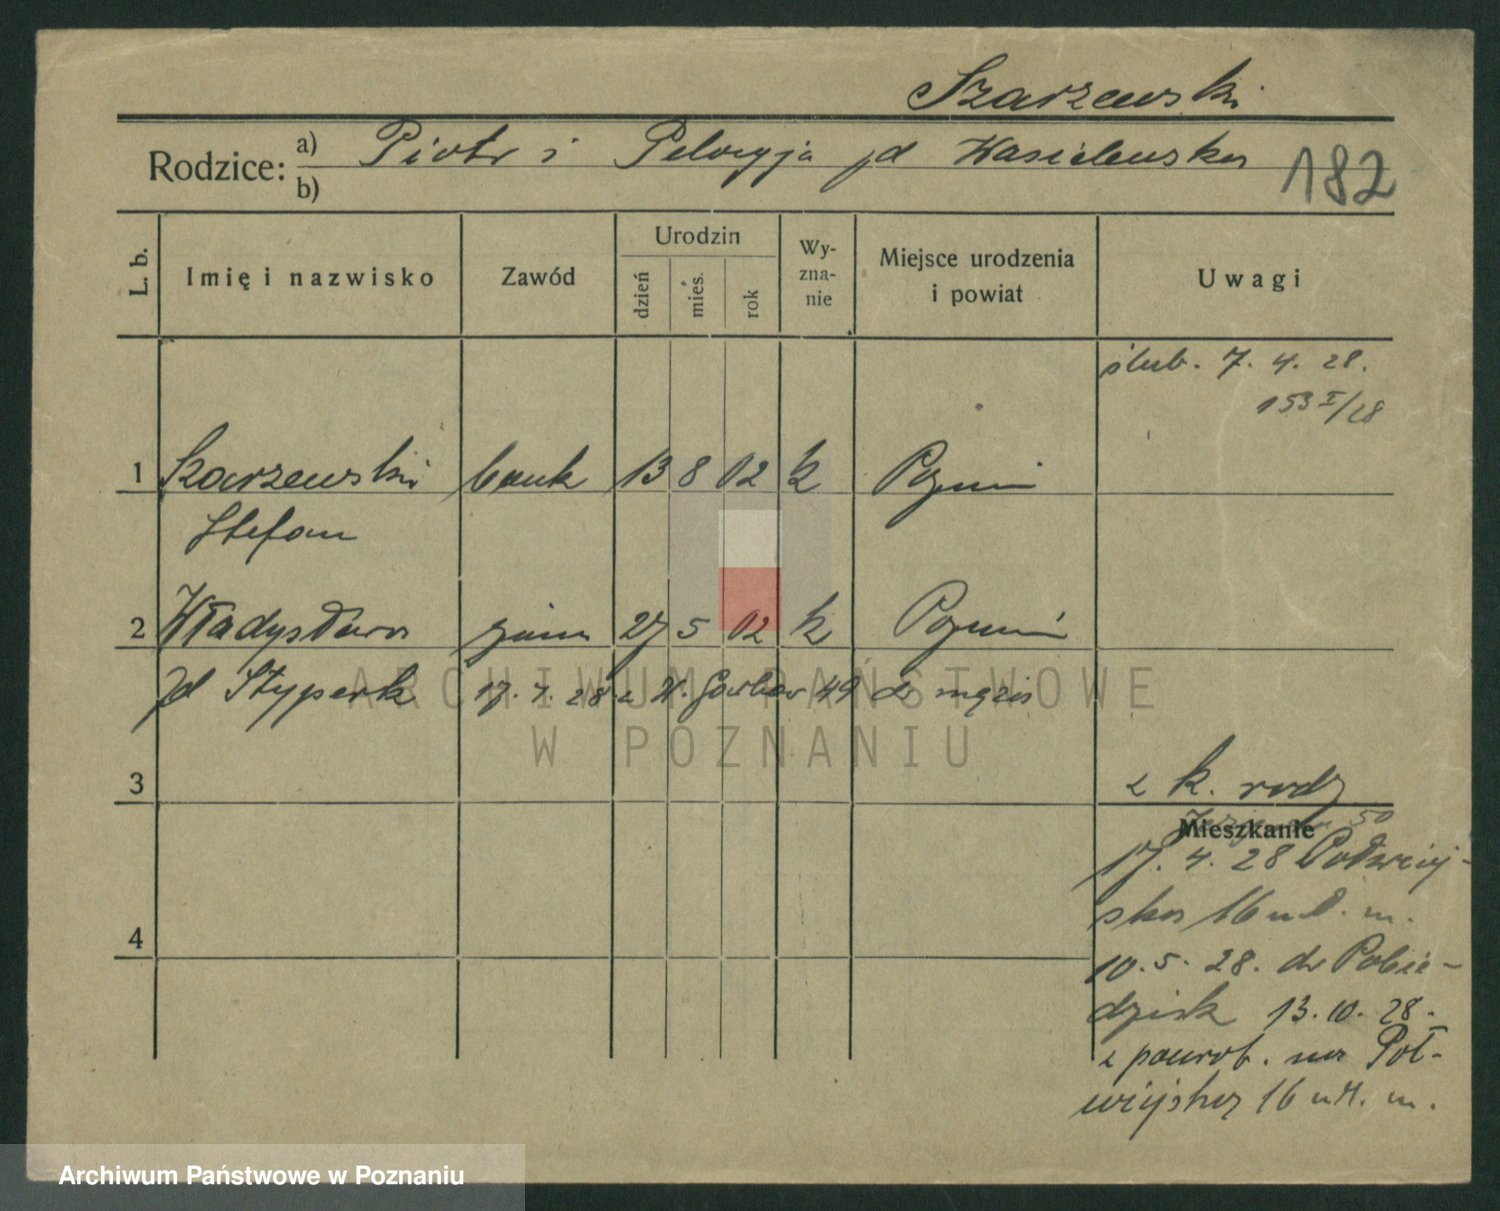 Szarzewski
Rodzice: a) Piotr i Pelagja zd Wasielewska
b)
182
L. b. Imię i nazwisko Zawód Urodzin dzień mies. rok Wy-zna-nie Miejsce urodzenia i powiat Uwagi
ślub. 7. 4. 28.
153 I/28
1 Szarzewski bank 13 8 02 k Poznań
Stefan
2 Władysława 27 5 02 k Poznań
zd Styperk 17. 4. 28 z H. Garbar 49 do męża
3
z k. rodz
Mieszkanie
50
17. 4. 28 Półwiej-
ska 16 u m.
4
10. 5. 28. do Pobie-
dzisk 13. 10. 28.
z powrot. na Pół-
wiejską 16 u m.
ARCHIWUM PAŃSTWOWE
W POZNANIU
Archiwum Państwowe w Poznaniu